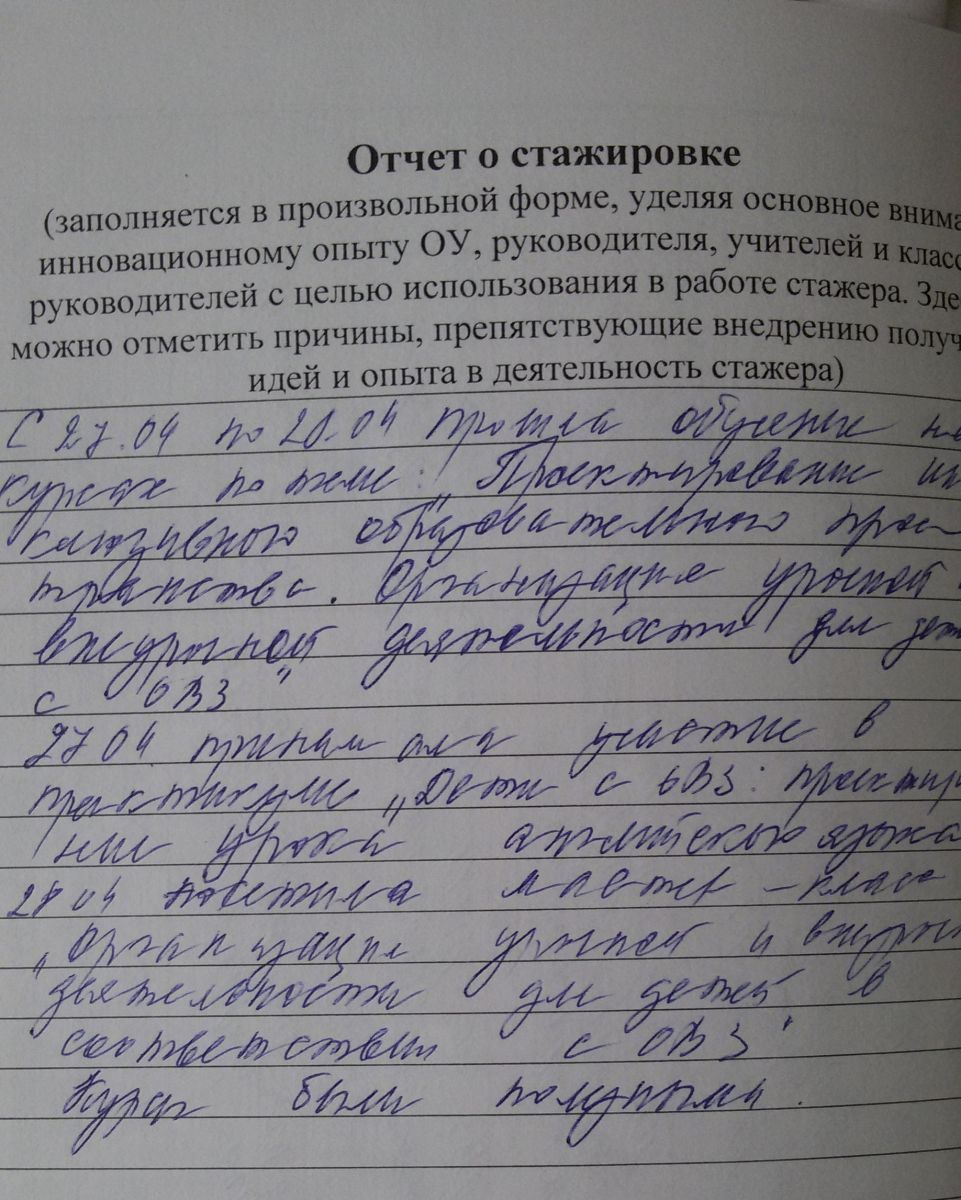 Отчет о стажировке
(заполняется в произвольной форме, уделяя основное внима
инновационному опыту ОУ, руководителя, учителей и класс
руководителей с целью использования в работе стажера. Зде
можно отметить причины, препятствующие внедрению получ
идей и опыта в деятельность стажера)
С 27.04 по 28.04 прошла обучение на
курсах по теме: „Проектирование ин
клюзивного образовательного прос
транства. Организация урочной
внеурочной деятельности для дет
с ОВЗ"
27 04. принимала участие в
практикуме „Дети с ОВЗ: проектир
ние урока английского языка
28 04 посетила мастер-класс
„Организация урочной и внеуроч
деятельности для детей в
соответствии с ОВЗ"
Курсы были полезными.